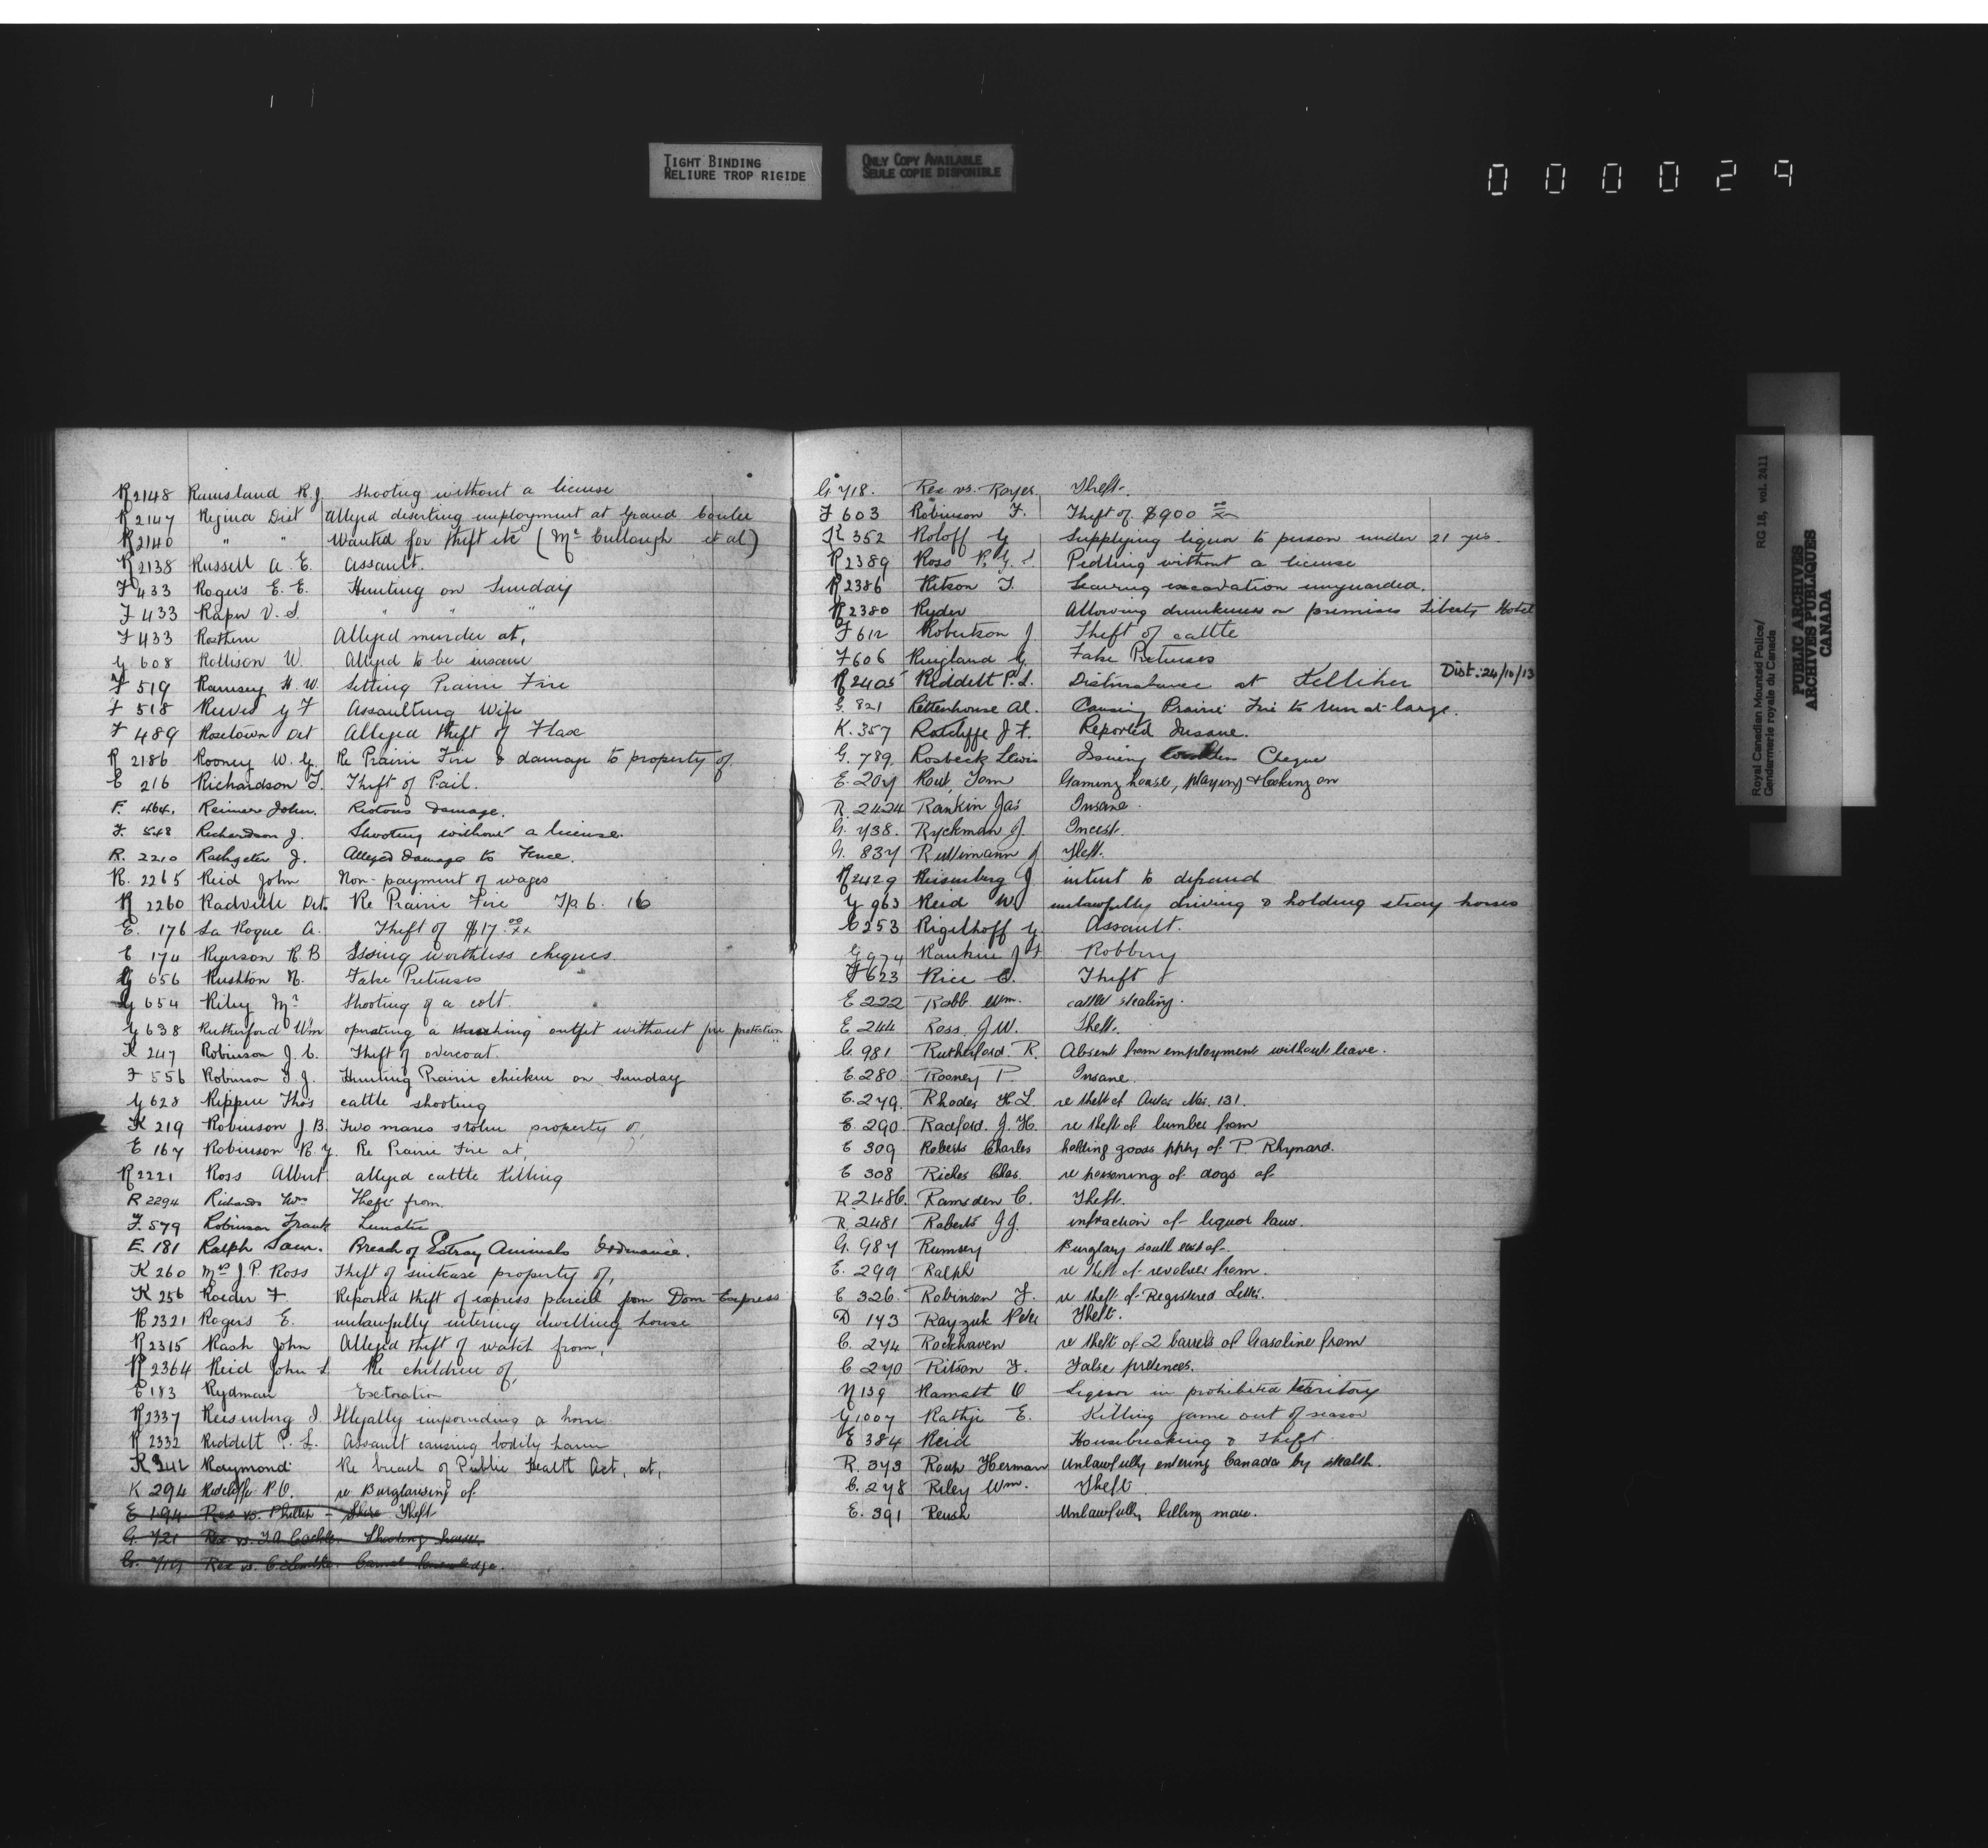 TIGHT BINDING
RELIURE TROP RIGIDE
ONLY COPY AVAILABLE
SEULE COPIE DISPONIBLE
000029
R 2148 Ramsland R.J. Shooting without a license
R 2147 Regina Dist Alleged deserting employment at Grand Coulee
R 2140 " " Wanted for theft etc (Mc Cullough et al)
R 2138 Russell A. E. Assault.
F 433 Rogers E. E. Hunting on Sunday
F 433 Raper V. S. " " "
F 433 Rosthern Alleged murder at,
G 608 Rollison W. Alleged to be insane
F 519 Ramsey H. W. Setting Prairie Fire
F 518 Reeves G F Assaulting Wife
F 489 Rosetown Det Alleged theft of Flax
R 2186 Rooney W. G. Re Prairie Fire & damage to property of
E 216 Richardson T. Theft of Pail.
F. 464. Reimer John. Riotous Damage.
F. 548 Richardson J. Shooting without a license.
R. 2210 J. Alleged Damage to Fence.
R. 2265 Reid John Non-payment of wages
R 2260 Radville Det. Re Prairie Fire Tp. 6. 16
E. 176 La Roque A. Theft of $17.00/xx
E 174 Ryerson R B Issing worthless cheques
G 656 Rushton N. False Pretenses
G 654 Riley Mr Shooting of a colt
G 638 Rutherford Wm operating a threshing outfit without fire protection
K 247 Robinson J. C. Theft of overcoat.
F 556 Robinson T. J. Hunting Prairie chicken on Sunday
G 628 Rippen Thos cattle shooting
K 219 Robinson J. B. Two mares stolen property of,
E 167 Robinson R. G. Re Prairie Fire at,
R 2221 Ross Albert alleged cattle Killing
R 2294 Richards Theft from.
F. 579 Robinson Frank Lunatic
E. 181 Ralph Sam. Breach of Estray Animals Ordinance.
K 260 Mrs J. P. Ross Theft of suitcase property of,
K 256 Roeder F. Reported theft of express parcel from Dom Express
R 2321 Rogers E. unlawfully entering dwelling house
R 2315 Rash John Alleged theft of watch from,
R 2364 Reid John L Re children of,
E 183 Rydman Extoration
R 2337 Reesenberg J. Illegally impounding a horse
R 2332 Riddell P. L. Assault causing bodily harm
K 342 Raymond Re breach of Public Health Act, at,
K 294 Ratcliffe P.O. re Burglarising of
E 194 Rex vs. Theft
G. 721 Rex vs. Shooting horses
G. 719 Rex vs. Carnal knowledge.
G 718. Rex vs. Royer, Theft.
F 603 Robinson F. Theft of $900 00/xx
K 352 Roloff G Supplying liquor to person under 21 yrs.
R 2389 Ross Pedling without a license
R 2386 Ritson T. Leaving excavation unguarded.
R 2380 Ryder Allowing drunkeness on premises Liberty Hotel
F 612 Robertson J. Theft of cattle
F 606 Ringland G. False Pretenses
R 2405 Riddell P. L. Disturbance at Kelliher Dist. 24/10/13
G. 821 Rettenhouse Al. Causing Prairie Fire to run at large.
K. 357 Ratcliffe J. F. Reported Insane.
G. 789. Rosbeck Lewis Issuing worthless Cheque
E. 207 Tom Gaming house, playing & looking on
R. 2424 Rankin Jas Insane.
G. 738. Ryckman J. Incest.
G. 837 Ruttimann J Theft.
R 2429 Reisenberg J. intent to defraud
G 963 Reid W. unlawfully driving & holding stray horses
C 253 Rigelhoff G. Assault.
G 974 Rankine J Robbery
F 623 Rice C. Theft
E 222 Robb. Wm. cattle stealing.
E 244 Ross. J W. Theft.
G. 981 Rutherford. R. Absent from employment without leave.
E. 280 Rooney P. Insane.
E. 279. Rhodes H. L. re theft of Auto. No. 131.
E. 290 Radford. J. H. re theft of lumber from
E 309 Roberts Charles holding goods ppty of P. Rhynard.
E 308 Riches Chas. re poisoning of dogs of
R. 2486. Ramsden C. Theft.
R. 2481 Roberts J J. infraction of liquor laws.
G. 987 Rumsey Burglary south east of.
E. 299 Ralph re theft of revolver from.
E 326. Robinson F. re theft of Registered Letter.
D 143 Rayzuk Pete Theft.
C. 274 Rockhaven re theft of 2 barrels of Gasoline from
C 270 Ritson F. False pretences.
N 139 Ramatt O Liquor in prohibited territory
G 1007 Rathje E. Killing game out of season
E 384 Reid Housebreaking & Theft
R. 373 Roup Herman Unlawfully entering Canada by stealth.
C. 278 Riley Wm. Theft
E. 391 Reush Unlawfully killing mare.
Royal Canadian Mounted Police/
Gendarmerie royale du Canada
RG 18, vol. 2411
PUBLIC ARCHIVES
ARCHIVES PUBLIQUES
CANADA